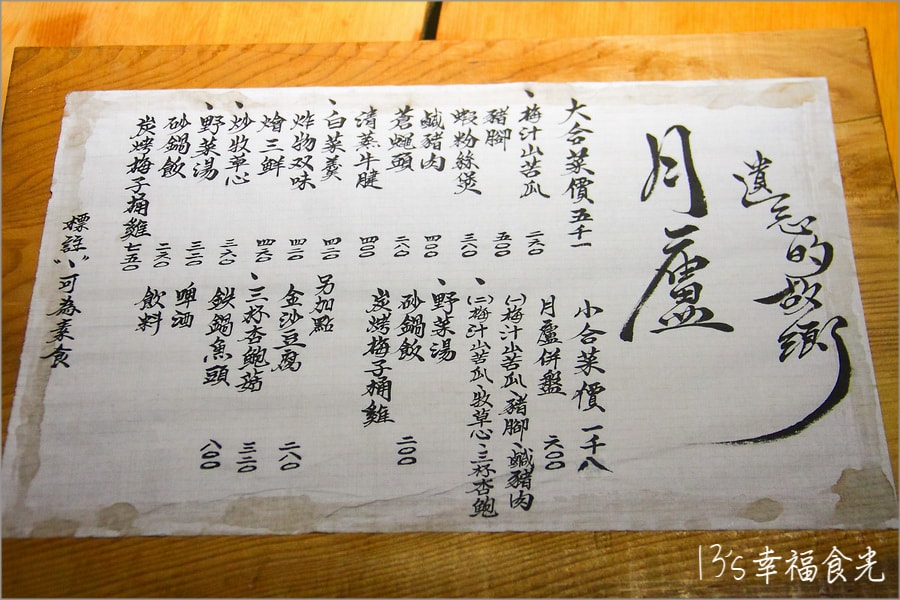 遺忘的故鄉
月廬
大合菜價五千一
、梅汁山苦瓜 二六〇
豬腳 五〇〇
蝦粉絲煲 三八〇
鹹豬肉 四〇〇
蒼蠅頭 二八〇
清蒸牛腱 四〇〇
、白菜羹
炸物双味 四二〇
燴三鮮
、炒牧草心 三六〇
、野菜湯 三二〇
砂鍋飯 二六〇
炭烤梅子桶雞 七五〇
小合菜價 一千八
月廬併盤 六〇〇
(一)梅汁山苦瓜、豬腳、鹹豬肉
、(二)梅汁山苦瓜、牧草心、三杯杏鮑
、野菜湯
砂鍋飯 二〇〇
炭烤梅子桶雞
另加點
金沙豆腐 二八〇
、三杯杏鮑菇 三二〇
鉄鍋魚頭 八〇〇
啤酒
飲料
標註"、"可為素食
13's幸福食光